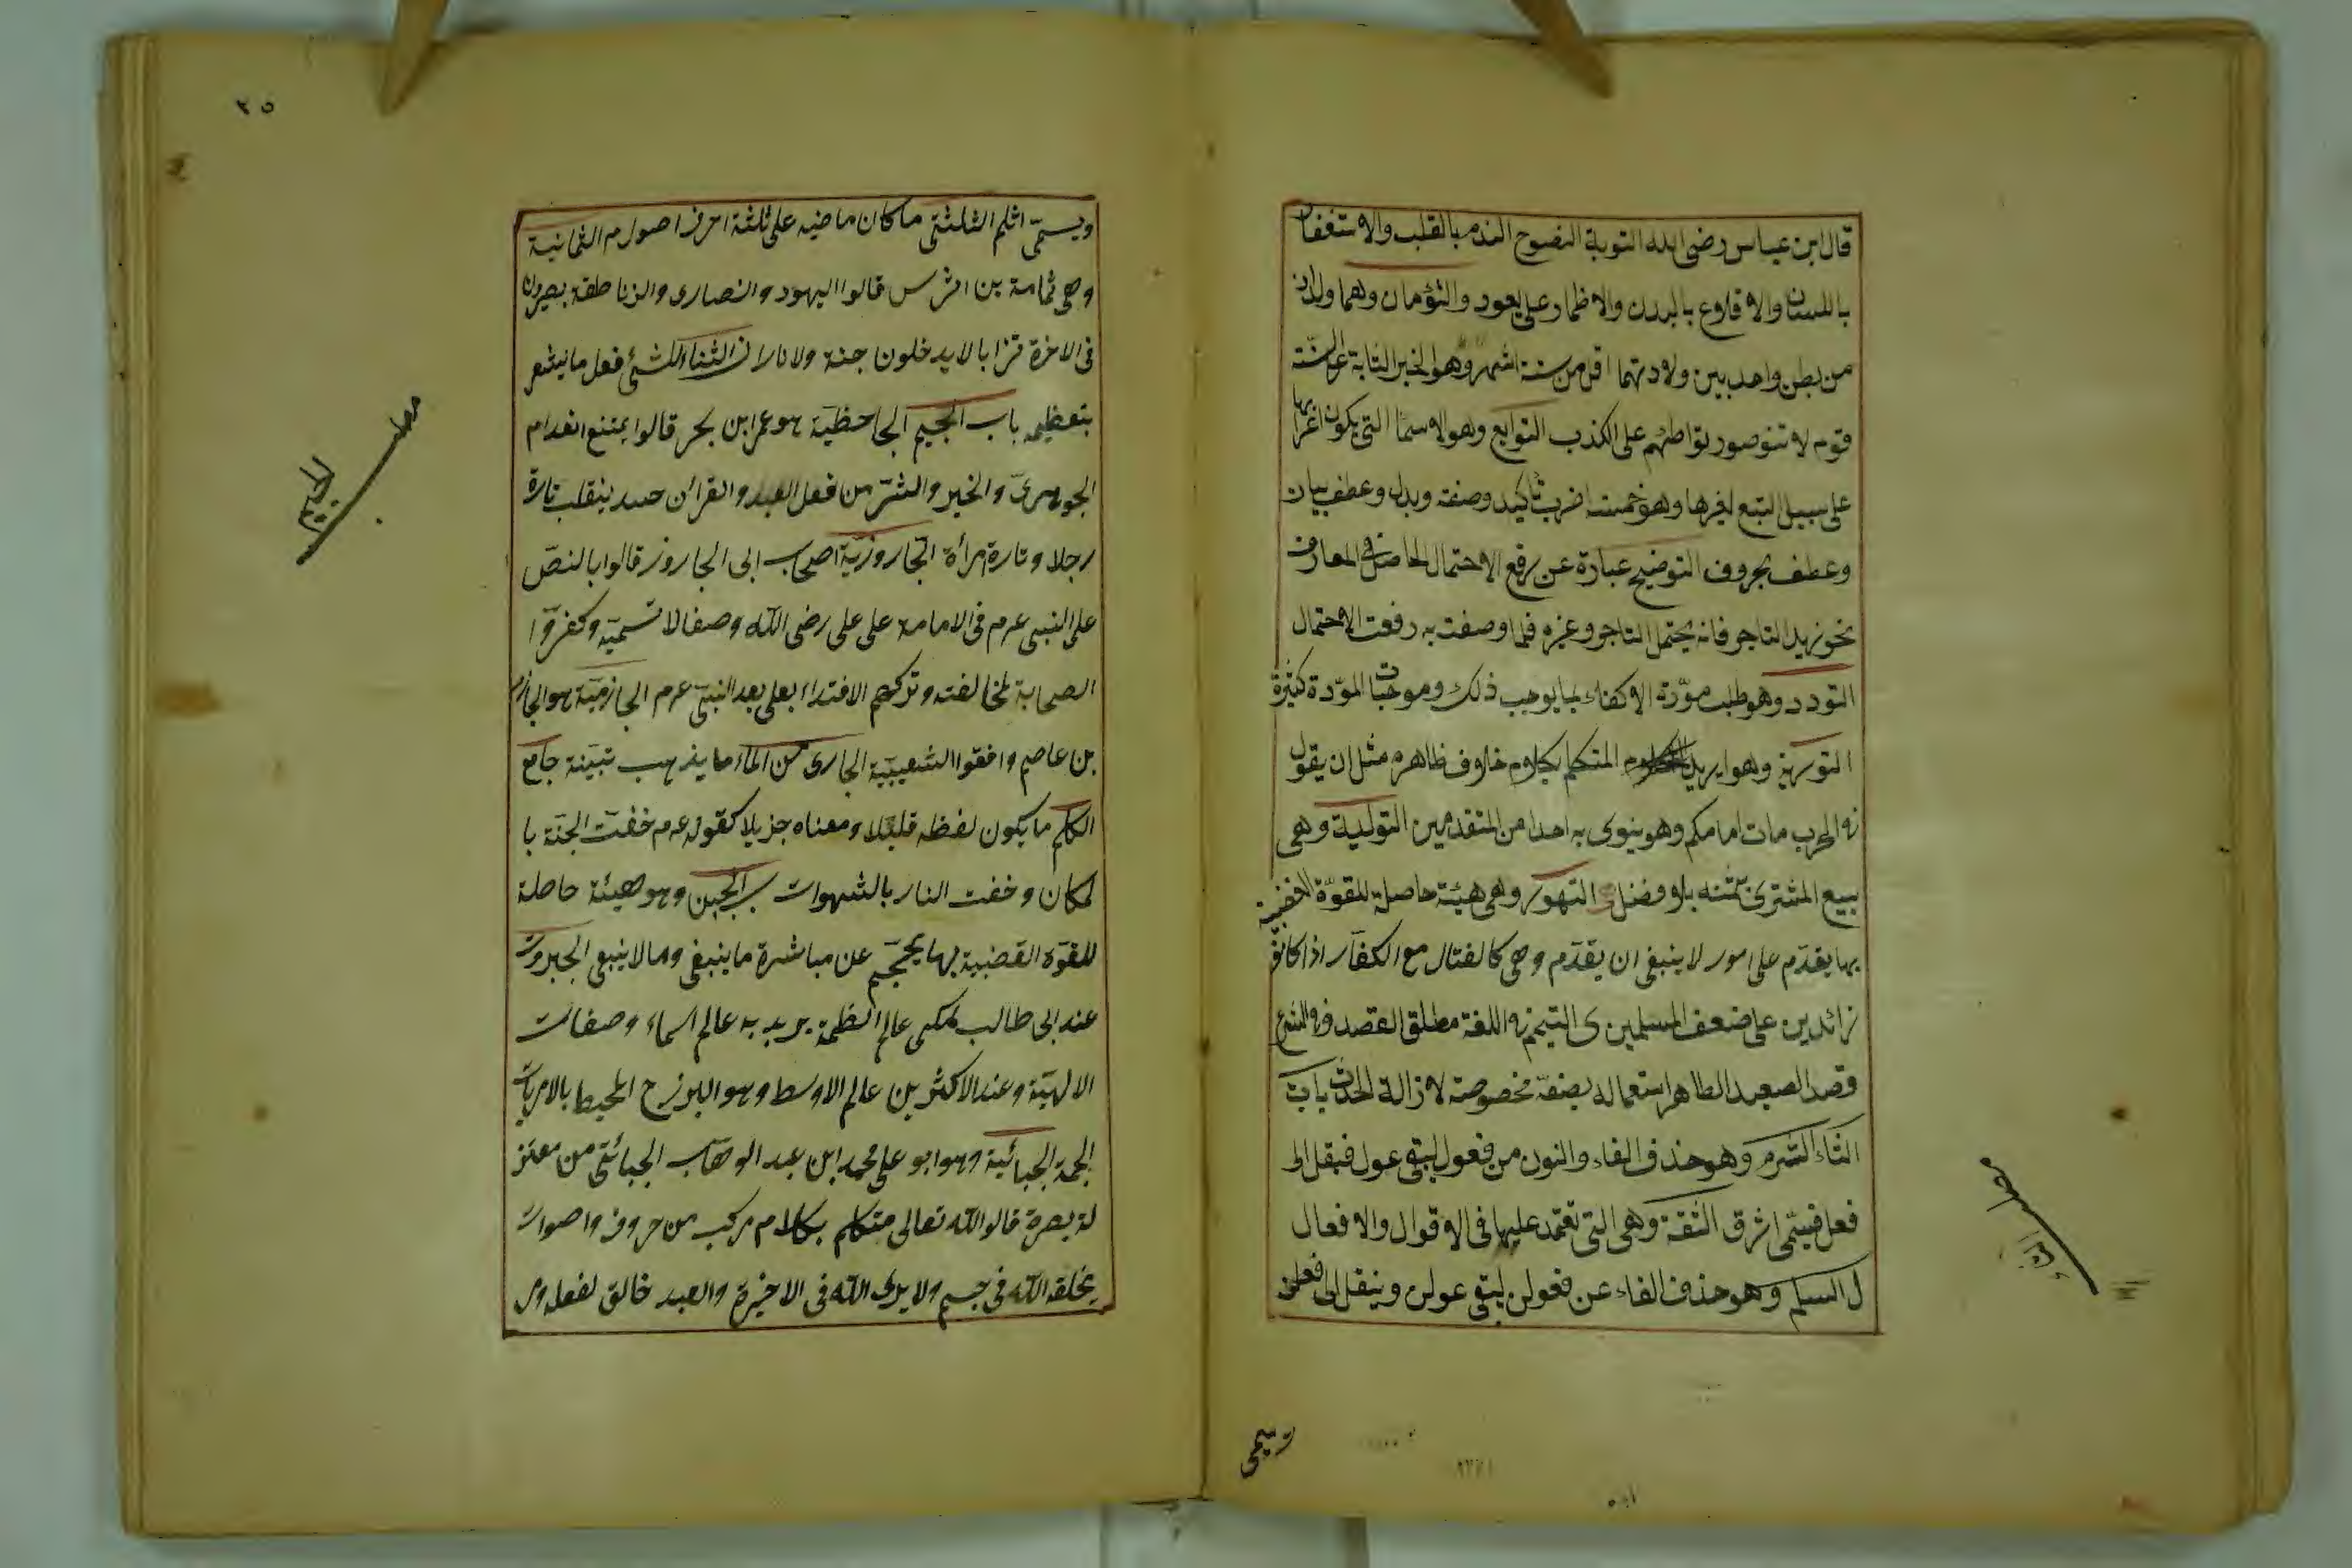 قال ابن عباس رضى الله التوبة النصوح الندم بالقلب والاستغفار
باللسان والاقلاع بالبدن والاظمار على يعود والتؤمان وهما ولدان
من بطن واحد بين ولادتهما اقل من ستة اشهر وهو الخبر الثابة على السنة
قوم لا تتوصور تواطئهم على الكذب التوابع وهو الاسما التى يكون اعرابها
على سبيل التبع لغيرها وهو خمسة اضرب تأكيد وصفة وبدل وعطف بيان
وعطف بحروف التوضيح عبارة عن رفع الاحتمال الحاصل فى المعارف
نحو زيد التاجر فانه يحتمل التاجر وغيره فلما وصفت به رفعت الاحتمال
التودد وهو طلب مودّة الاكفاء بما يوجب ذلك وموجبات المودّة كثيرة
التورية وهو ايريد المتكلم بكلام خلاف ظاهره مثل ان يقول
فى الحرب مات امامكم وهو ينوى به احدا من المتقدمين التولية وهى
بيع المشترى بثمنه بلا وفضل التهور وهى هيئة حاصلة للقوّة الغضبية
بها يقدّم على امور لا ينبغى ان يقدّم وهى كالفتال مع الكفار اذا كانوا
زائدين على ضعف المسلمين ى التيمم فى اللغة مطلق القصد وفى الشرع
قصد الصعيد الطاهر استعماله بصفة مخصوصة لازالة الحدث باب
الثاء الثرم وهو حذف الفاء والنون من فعول لبتقى عول فيقل الى
فعل فيسمّى اثرق الثقة وهى التى تعتمد عليها فى الاقوال والافعال
ل السلم وهو حذف الفاء عن فعولن لبتقى عولن وينقل الى فعلن
ويسمى
ويسمّى اثلم الثلثى ما كان ماضيه على ثلثة احرف اصول م الثمانية
وهى ثمامة بن اشرس قالوا اليهود والنصارى والزناطقة يصيرون
فى الاخرة ترابا لا يدخلون جنة ولا نارا ن الثناء للشئ فعل ما يشعر
بتعظيمه باب الجيم الجاحظية هو عمر ابن بحر قالوا يمتنع انعدام
الجوهرىّ والخير والشرّ من فعل العبد والقرأن حسد ينقلب تارة
رجلا وتارة امرأة الجاروزيّة اصحاب ابى الجاروز قالوا بالنصّ
على النبى عرم فى الامامة على على رضى الله وصفا لا تسميّة وكفرّوا
الصحابة لمخالفته وتركهم الاقتداء بعلى بعد النبىّ عرم الجازميّة هو الجازم
بن عاصم وافقوا الشعيبيّة الجارى من الماء ما يذهب تبينة جامع
الكلم ما يكون لفظه قليلا ومعناه جزيلا كقوله عرم خفت الجنّة با
لمكان وخفت النار بالشهوات ب الجبن وهو هيئة حاصلة
للقوّة الغضبية بها يحجم عن مباشرة ما ينبغى وما لا ينبغى الجبروت
عند ابى طالب المكى عالم العظمة يريد به عالم اسماء وصفات
الالهيّة وعند الاكثرين عالم الاوسط وهو البرزح المحيط بالامريات
الجمة الجبائية وهو ابو على محمد ابن عبد الوهّاب الجبائىّ من معتز
لة بصرة قالوا الله تعالى متكلم بكلام مركب من حروف واصوات
يخلقه الله فى جسم ولا يرى الله فى الاخيرة والعبد خالق لفعله وم
٢٥